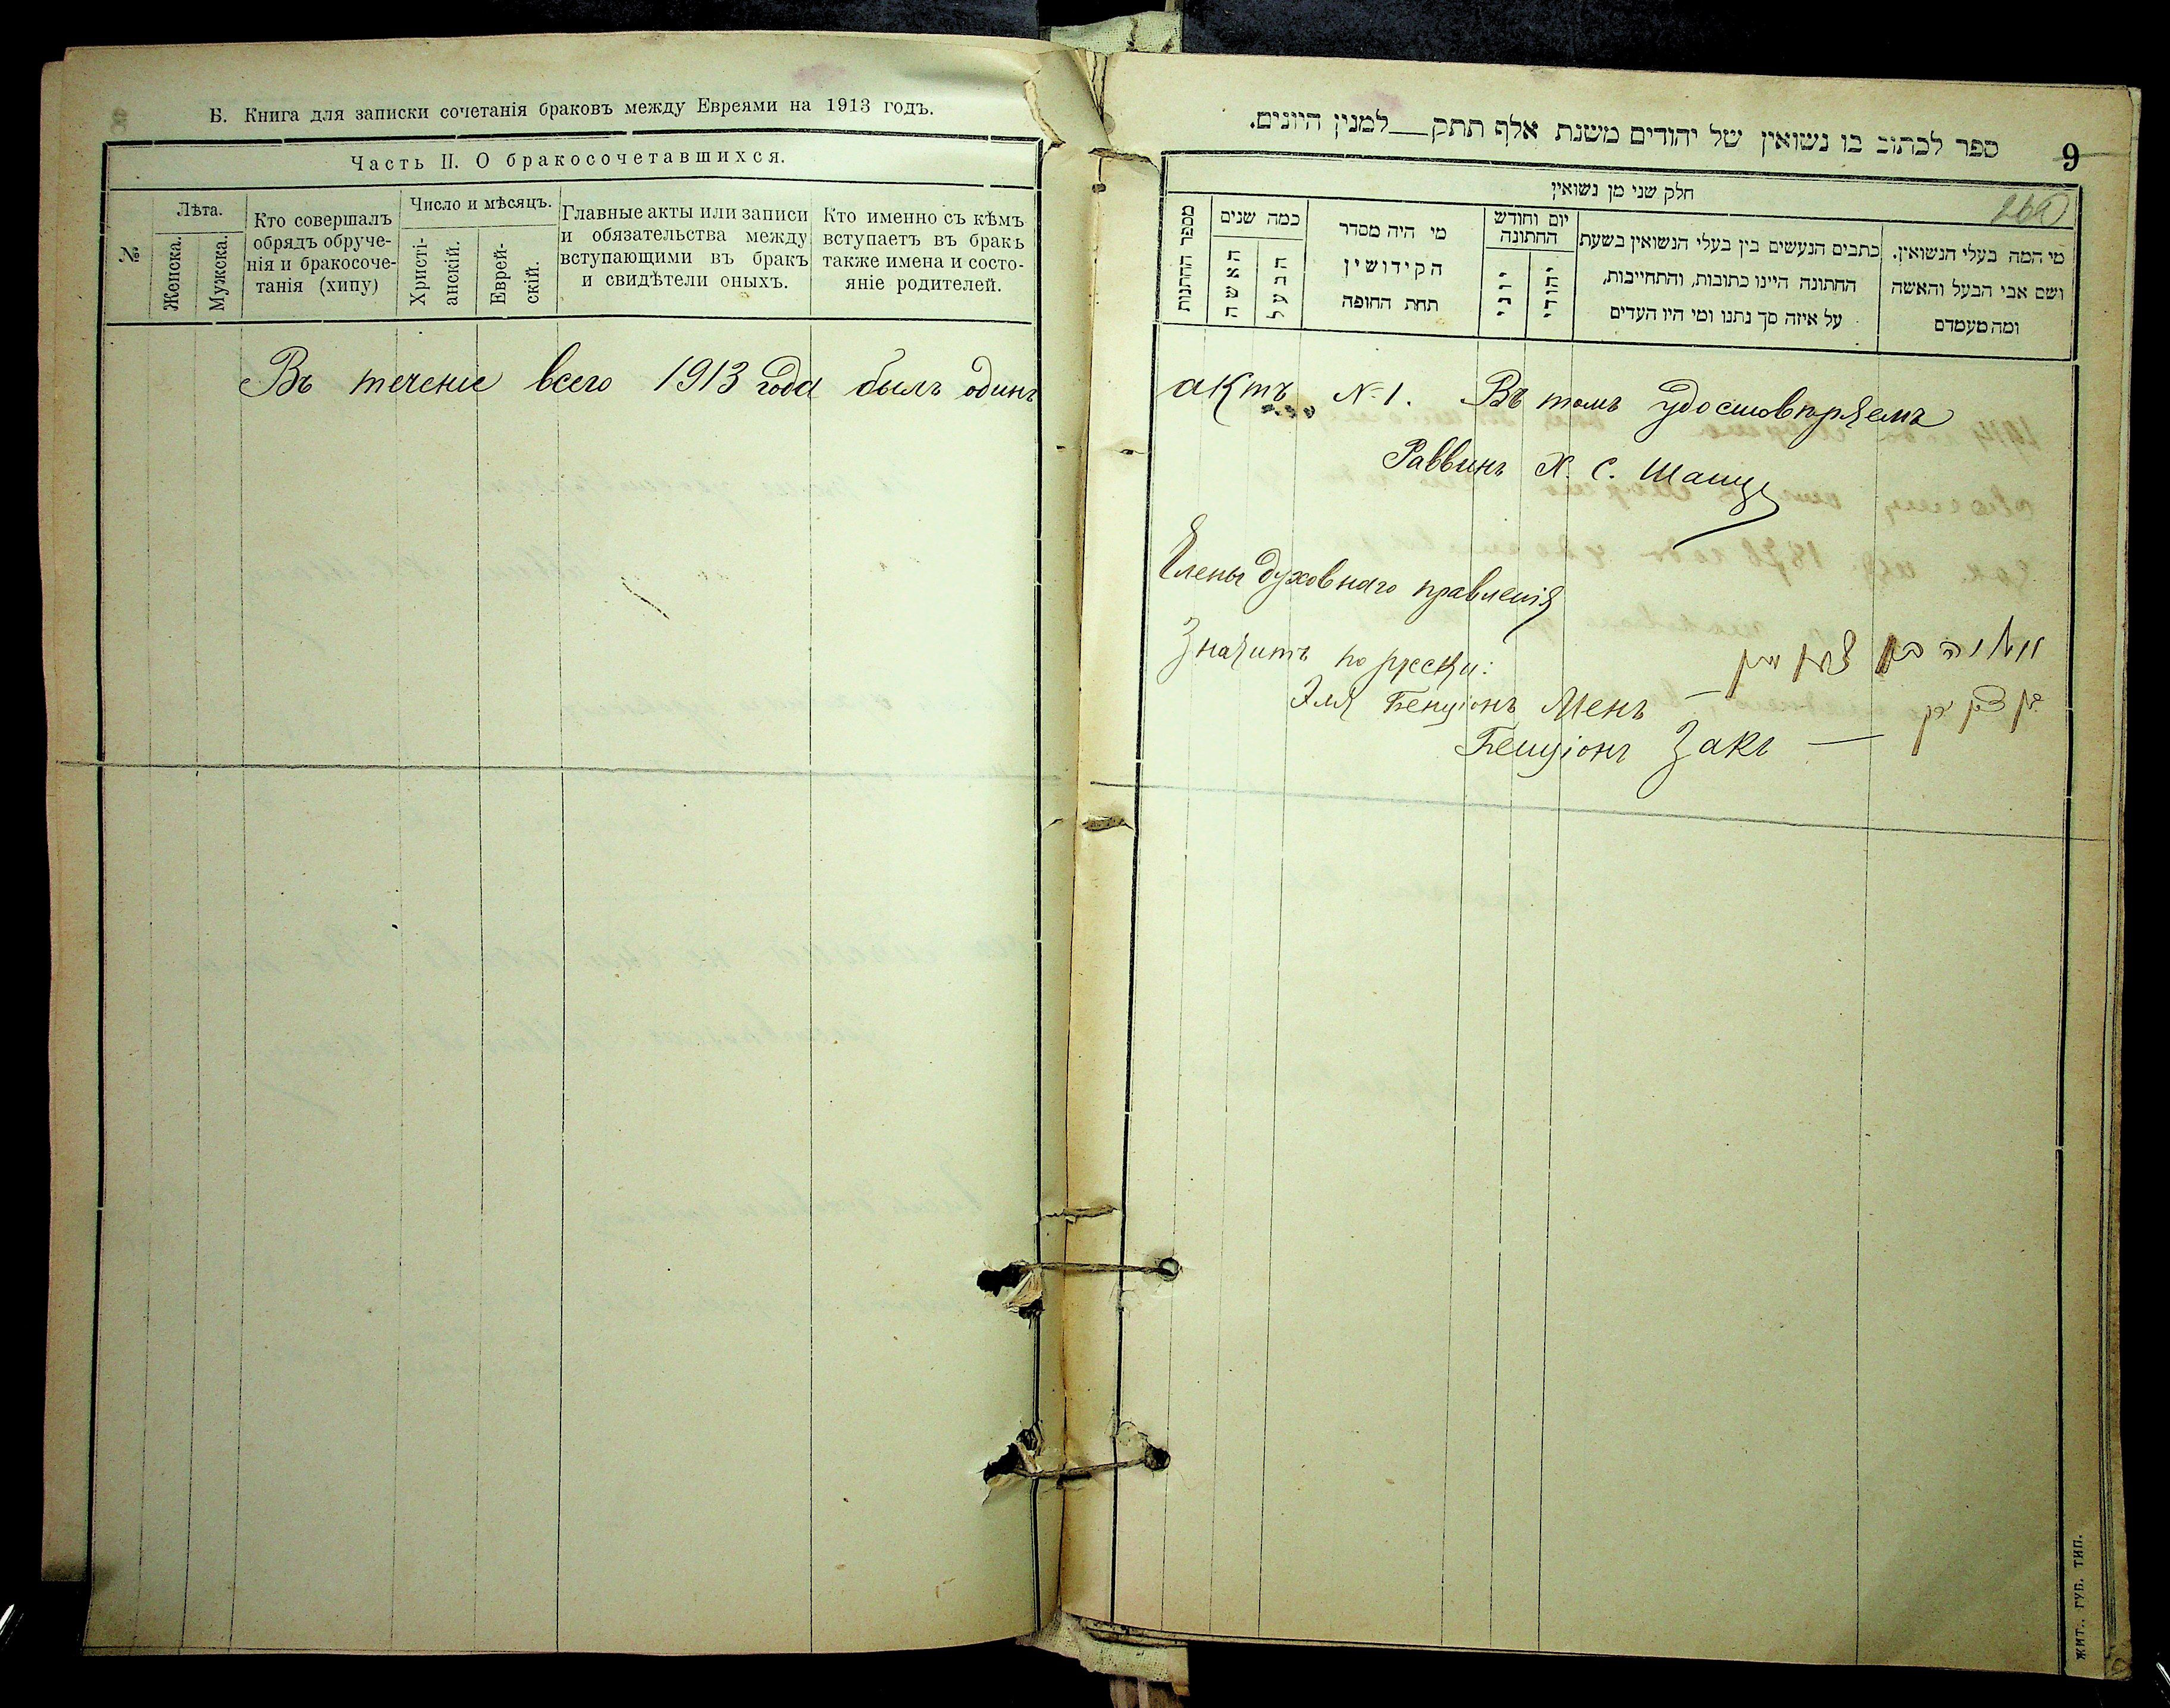 Б. Книга для записки сочетанія браковъ между Евреями на 1913 годъ.
Часть II. О бракосочетавшихся.
№
Лѣта.
Женска.
Мужска.
Кто совершалъ
обрядъ обруче-
нія и бракосоче-
танія (хипу)
Число и мѣсяцъ.
Христі-
анскій.
Еврей-
скій.
Главные акты или записи
и обязательства между
вступающими въ бракъ
и свидѣтели оныхъ.
Кто именно съ кѣмъ
вступаетъ въ бракъ
также имена и состо-
яніе родителей.
Въ течение всего 1913 года былъ одинъ
ספר לכתוב בו נשואין של יהודים משנת אלף תתק—למנין היונים.
9
חלק שני מן נשואין
מספר החתונות
כמה שנים
האשה
הבעל
מי היה מסדר
הקידושין
תחת החופה
יום וחודש
החתונה
יוני
יהודי
כתבים הנעשים בין בעלי הנשואין בשעת
החתונה היינו כתובות, והתחייבות,
על איזה סך נתנו ומי היו העדים
מי המה בעלי הנשואין.
ושם אבי הבעל והאשה
ומה מעמדם
актъ №1. Въ томъ удостовѣряемъ
Раввинъ Х. С. Шацъ
Члены духовнаго правленія
Значитъ по русски:
Эля Бенціонъ Менъ —
Бенціонъ Закъ —
בן ציון
ЖИТ. ГУБ. ТИП.